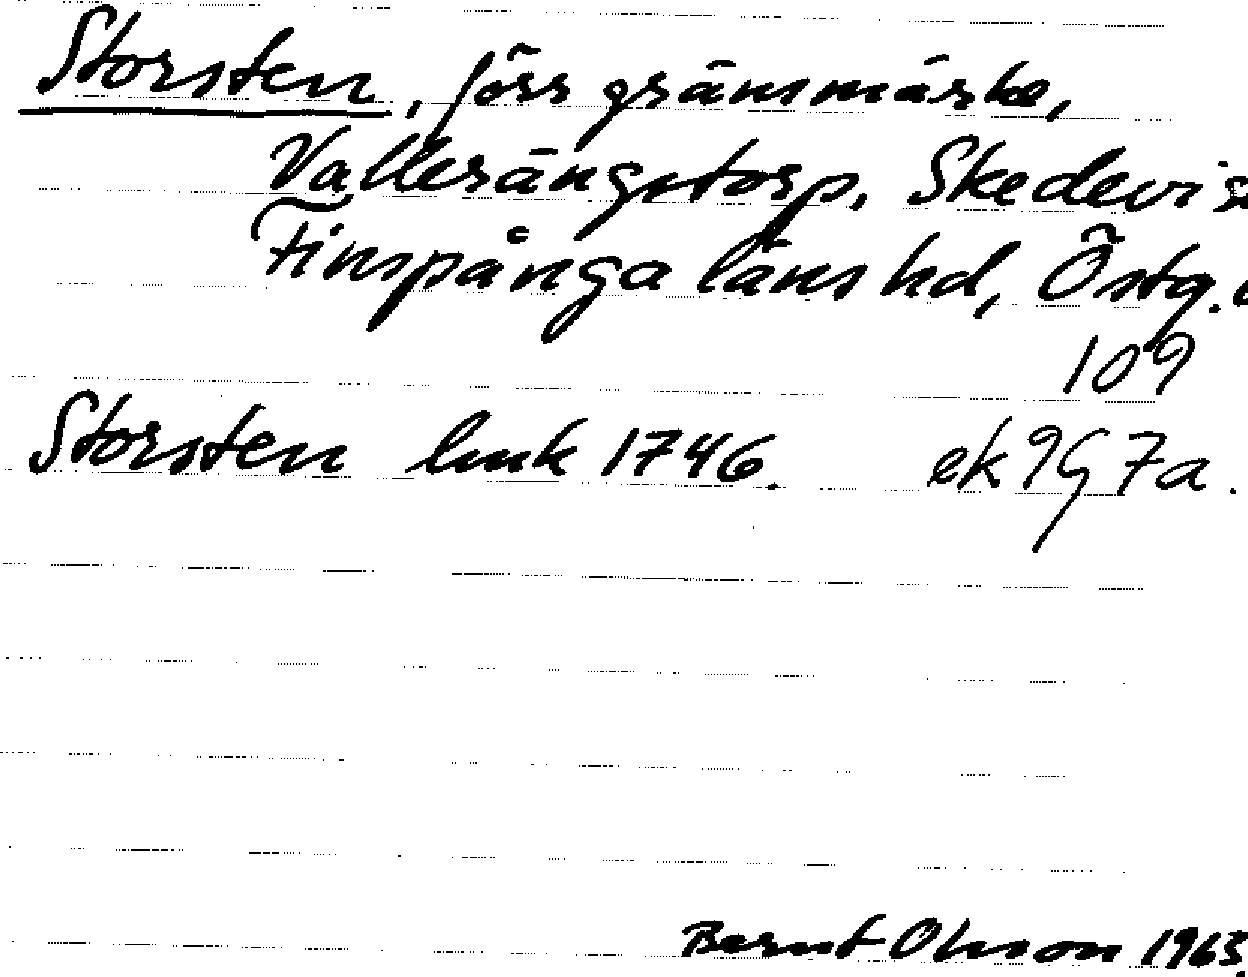 Storsten, förr gränsmärke,
Vallerängstorp, Skedevi sn
Finspånga läns hd, Östg.
109
Storsten lmk 1746. ek 9G7a.
Bernt Olsson 1963